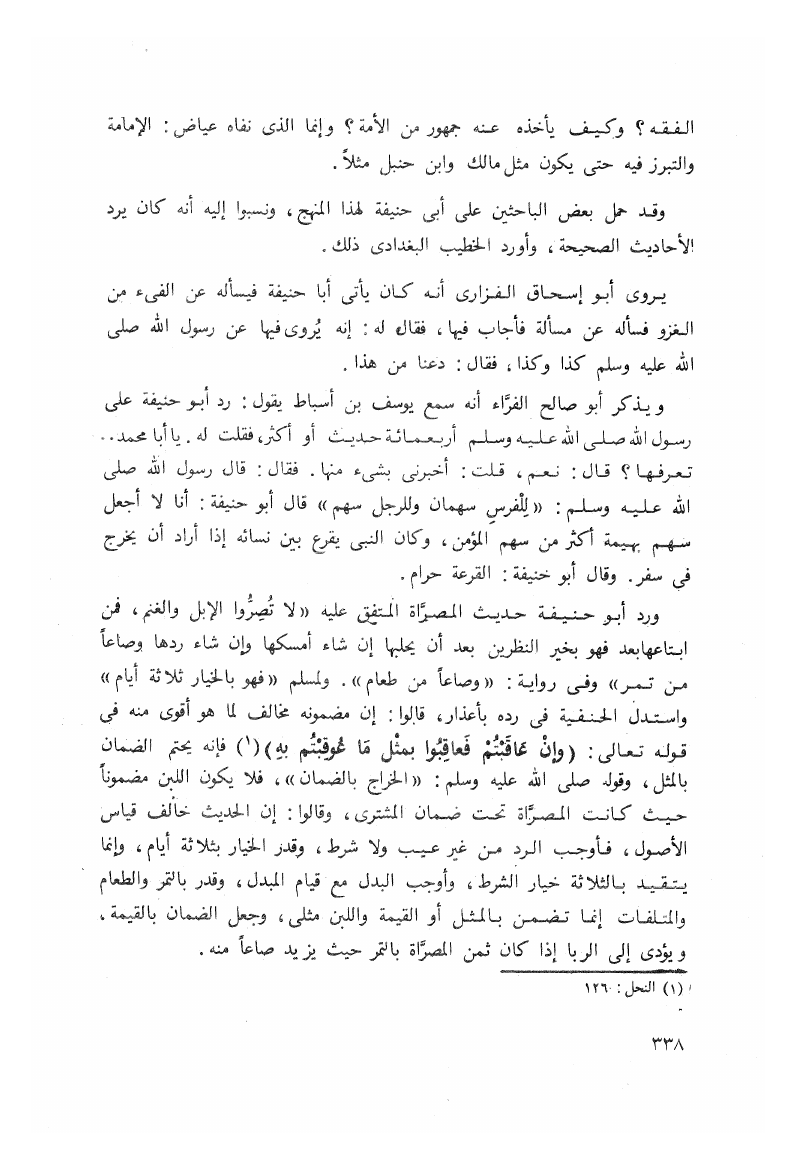 الفقه؟ وكيف يأخذه عنه جمهور من الأمة؟ وإنما الذى نفاه عياض: الإمامة
والتبرز فيه حتى يكون مثل مالك وابن حنبل مثلاً.
وقد حمل بعض الباحثين على أبى حنيفة لهذا المنهج، ونسبوا إليه أنه كان يرد
الأحاديث الصحيحة، وأورد الخطيب البغدادى ذلك.
يروى أبو إسحاق الفزارى أنه كان يأتى أبا حنيفة فيسأله عن الفىء من
الغزو فسأله عن مسألة فأجاب فيها، فقال له: إنه يُروى فيها عن رسول الله صلى
الله عليه وسلم كذا وكذا، فقال: دعنا من هذا.
ويذكر أبو صالح الفرَّاء أنه سمع يوسف بن أسباط يقول: رد أبو حنيفة على
رسول الله صلى الله عليه وسلم أربعمائة حديث أو أكثر، فقلت له. يا أبا محمد..
تعرفها؟ قال: نعم، قلت: أخبرنى بشىء منها. فقال: قال رسول الله صلى
الله عليه وسلم: «لِلْفرسِ سهمان وللرجل سهم» قال أبو حنيفة: أنا لا أجعل
سهم بهيمة أكثر من سهم المؤمن، وكان النبى يقرع بين نسائه إذا أراد أن يخرج
فى سفر. وقال أبو خنيفة: القرعة حرام.
ورد أبو حنيفة حديث المصرَّاة المتفق عليه «لا تُصِرُّوا الإبل والغنم، فمن
ابتاعهابعد فهو بخير النظرين بعد أن يحلبها إن شاء أمسكها وإن شاء ردها وصاعاً
من تمر» وفى رواية: «وصاعاً من طعام». ولمسلم «فهو بالخيار ثلاثة أيام»
واستدل الحنفية فى رده بأعذار، قالوا: إن مضمونه مخالف لما هو أقوى منه فى
قوله تعالى: (وإنْ عَاقَبْتُمْ فَعاقِبُوا بمثْل مَا عُوقِبْتُم بهِ)(١) فإنه يحتم الضمان
بالمثل، وقوله صلى الله عليه وسلم: «الخراج بالضمان»، فلا يكون اللبن مضموناً
حيث كانت المصرَّاة تحت ضمان المشترى، وقالوا: إن الحديث خالف قياس
الأصول، فأوجب الرد من غير عيب ولا شرط، وقدر الخيار بثلاثة أيام، وإنما
يتقيد بالثلاثة خيار الشرط، وأوجب البدل مع قيام المبدل، وقدر بالتمر والطعام
والمتلفات إنما تضمن بالمثل أو القيمة واللبن مثلى، وجعل الضمان بالقيمة،
ويؤدى إلى الربا إذا كان ثمن المصرَّاة بالتمر حيث يزيد صاعاً منه.
(١) النحل: ١٢٦
٣٣٨